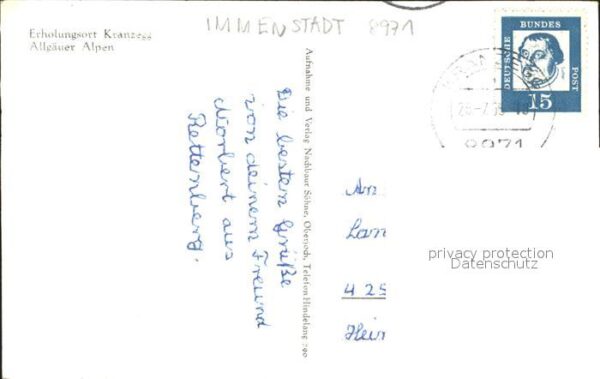 IMMENSTADT 8971
Erholungsort Kranzegg
Allgäuer Alpen
DEUTSCHE BUNDES POST
15
8971
Aufnahme und Verlag Nachbaur Söhne, Obenoch, Telefon Hindelang
Die besten Grüße
von deinem Freund
Norbert aus
Rettenberg.
An
Lan
425
Hein
privacy protection
Datenschutz